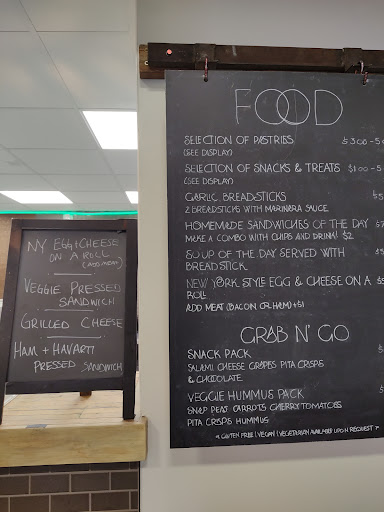 NY EGG & CHEESE
ON A ROLL
(ADD MEAT)
VEGGIE PRESSED
SANDWICH
GRILLED CHEESE
HAM + HAVARTI
PRESSED SANDWICH
FOOD
SELECTION OF PASTRIES $3.00-5
(SEE DISPLAY)
SELECTION OF SNACKS & TREATS $1.00-5
(SEE DISPLAY)
GARLIC BREADSTICKS
2 BREADSTICKS WITH MARINARA SAUCE
HOMEMADE SANDWICHES OF THE DAY
MAKE A COMBO WITH CHIPS AND DRINK! $2
SOUP OF THE DAY SERVED WITH
BREADSTICK
NEW YORK STYLE EGG & CHEESE ON A
ROLL
ADD MEAT (BACON OR HAM) +$1
GRAB N' GO
SNACK PACK
SALAMI CHEESE GRAPES PITA CRISPS
& CHOCOLATE
VEGGIE HUMMUS PACK
SNAP PEAS CARROTS CHERRY TOMATOES
PITA CRISPS HUMMUS
* GLUTEN FREE | VEGAN | VEGETARIAN AVAILABLE UPON REQUEST *